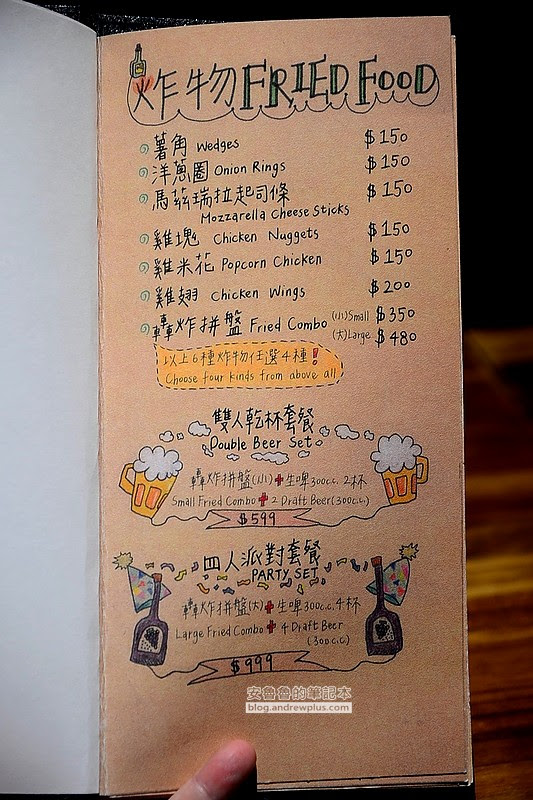 炸物 FRIED FOOD
薯角 Wedges $150
洋蔥圈 Onion Rings $150
馬茲瑞拉起司條 $150
Mozzarella Cheese Sticks
雞塊 Chicken Nuggets $150
雞米花 Popcorn Chicken $150
雞翅 Chicken Wings $200
轟炸拼盤 Fried Combo (小)Small $350
(大)Large $480
以上6種炸物任選4種!
Choose four kinds from above all
雙人乾杯套餐
Double Beer Set
轟炸拼盤(小)+生啤300c.c. 2杯
Small Fried Combo + 2 Draft Beer (300c.c.)
$599
四人派對套餐
PARTY SET
轟炸拼盤(大)+生啤300c.c. 4杯
Large Fried Combo + 4 Draft Beer
(300c.c)
$999
安魯魯的筆記本
blog.andrewplus.com